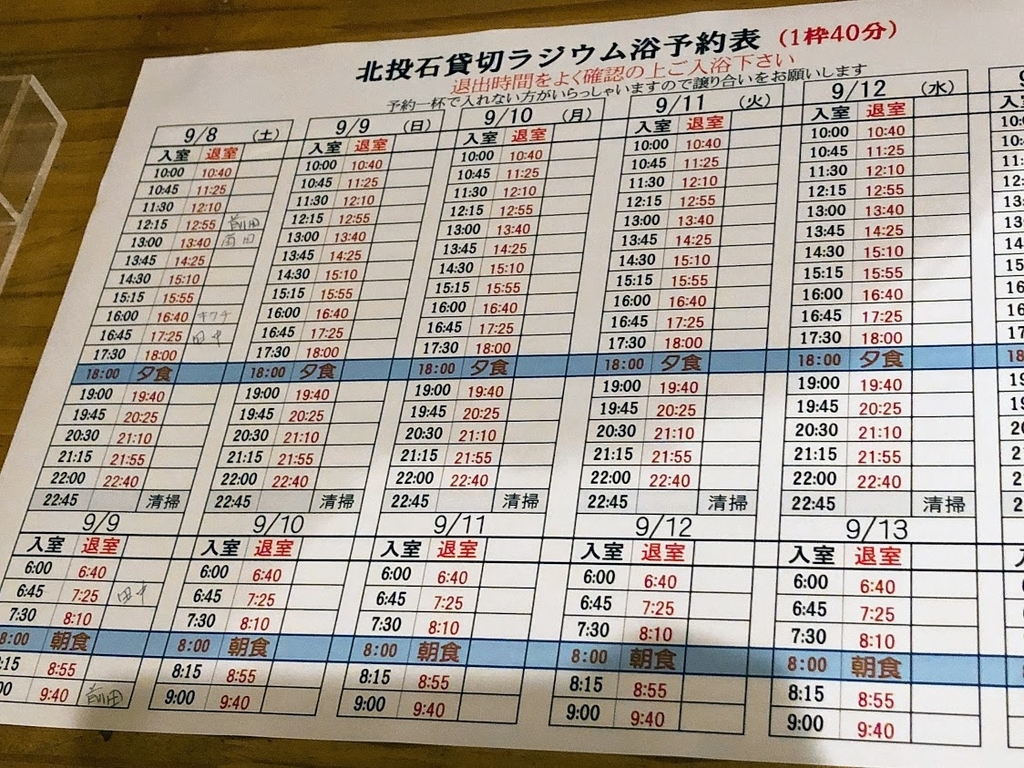 北投石貸切ラジウム浴予約表 (1枠40分)
退出時間をよく確認の上ご入浴下さい
予約一杯で入れない方がいらっしゃいますので譲り合いをお願いします
9/8 (土) 9/9 (日) 9/10 (月) 9/11 (火) 9/12 (水)
入室 退室 入室 退室 入室 退室 入室 退室 入室 退室
10:00 10:40 10:00 10:40 10:00 10:40 10:00 10:40 10:00 10:40
10:45 11:25 10:45 11:25 10:45 11:25 10:45 11:25 10:45 11:25
11:30 12:10 11:30 12:10 11:30 12:10 11:30 12:10 11:30 12:10
12:15 12:55 前田 12:15 12:55 12:15 12:55 12:15 12:55 12:15 12:55
13:00 13:40 13:00 13:40 13:00 13:40 13:00 13:40 13:00 13:40
13:45 14:25 13:45 14:25 13:45 14:25 13:45 14:25 13:45 14:25
14:30 15:10 14:30 15:10 14:30 15:10 14:30 15:10 14:30 15:10
15:15 15:55 15:15 15:55 15:15 15:55 15:15 15:55 15:15 15:55
16:00 16:40 キクチ 16:00 16:40 16:00 16:40 16:00 16:40 16:00 16:40
16:45 17:25 田中 16:45 17:25 16:45 17:25 16:45 17:25 16:45 17:25
17:30 18:00 17:30 18:00 17:30 18:00 17:30 18:00 17:30 18:00
18:00 夕食 18:00 夕食 18:00 夕食 18:00 夕食 18:00 夕食
19:00 19:40 19:00 19:40 19:00 19:40 19:00 19:40 19:00 19:40
19:45 20:25 19:45 20:25 19:45 20:25 19:45 20:25 19:45 20:25
20:30 21:10 20:30 21:10 20:30 21:10 20:30 21:10 20:30 21:10
21:15 21:55 21:15 21:55 21:15 21:55 21:15 21:55 21:15 21:55
22:00 22:40 22:00 22:40 22:00 22:40 22:00 22:40 22:00 22:40
22:45 清掃 22:45 清掃 22:45 清掃 22:45 清掃 22:45 清掃
9/9 9/10 9/11 9/12 9/13
入室 退室 入室 退室 入室 退室 入室 退室 入室 退室
6:00 6:40 6:00 6:40 6:00 6:40 6:00 6:40 6:00 6:40
6:45 7:25 田中 6:45 7:25 6:45 7:25 6:45 7:25 6:45 7:25
7:30 8:10 7:30 8:10 7:30 8:10 7:30 8:10 7:30 8:10
8:00 朝食 8:00 朝食 8:00 朝食 8:00 朝食 8:00 朝食
:15 8:55 8:15 8:55 8:15 8:55 8:15 8:55 8:15 8:55
00 9:40 前田 9:00 9:40 9:00 9:40 9:00 9:40 9:00 9:40